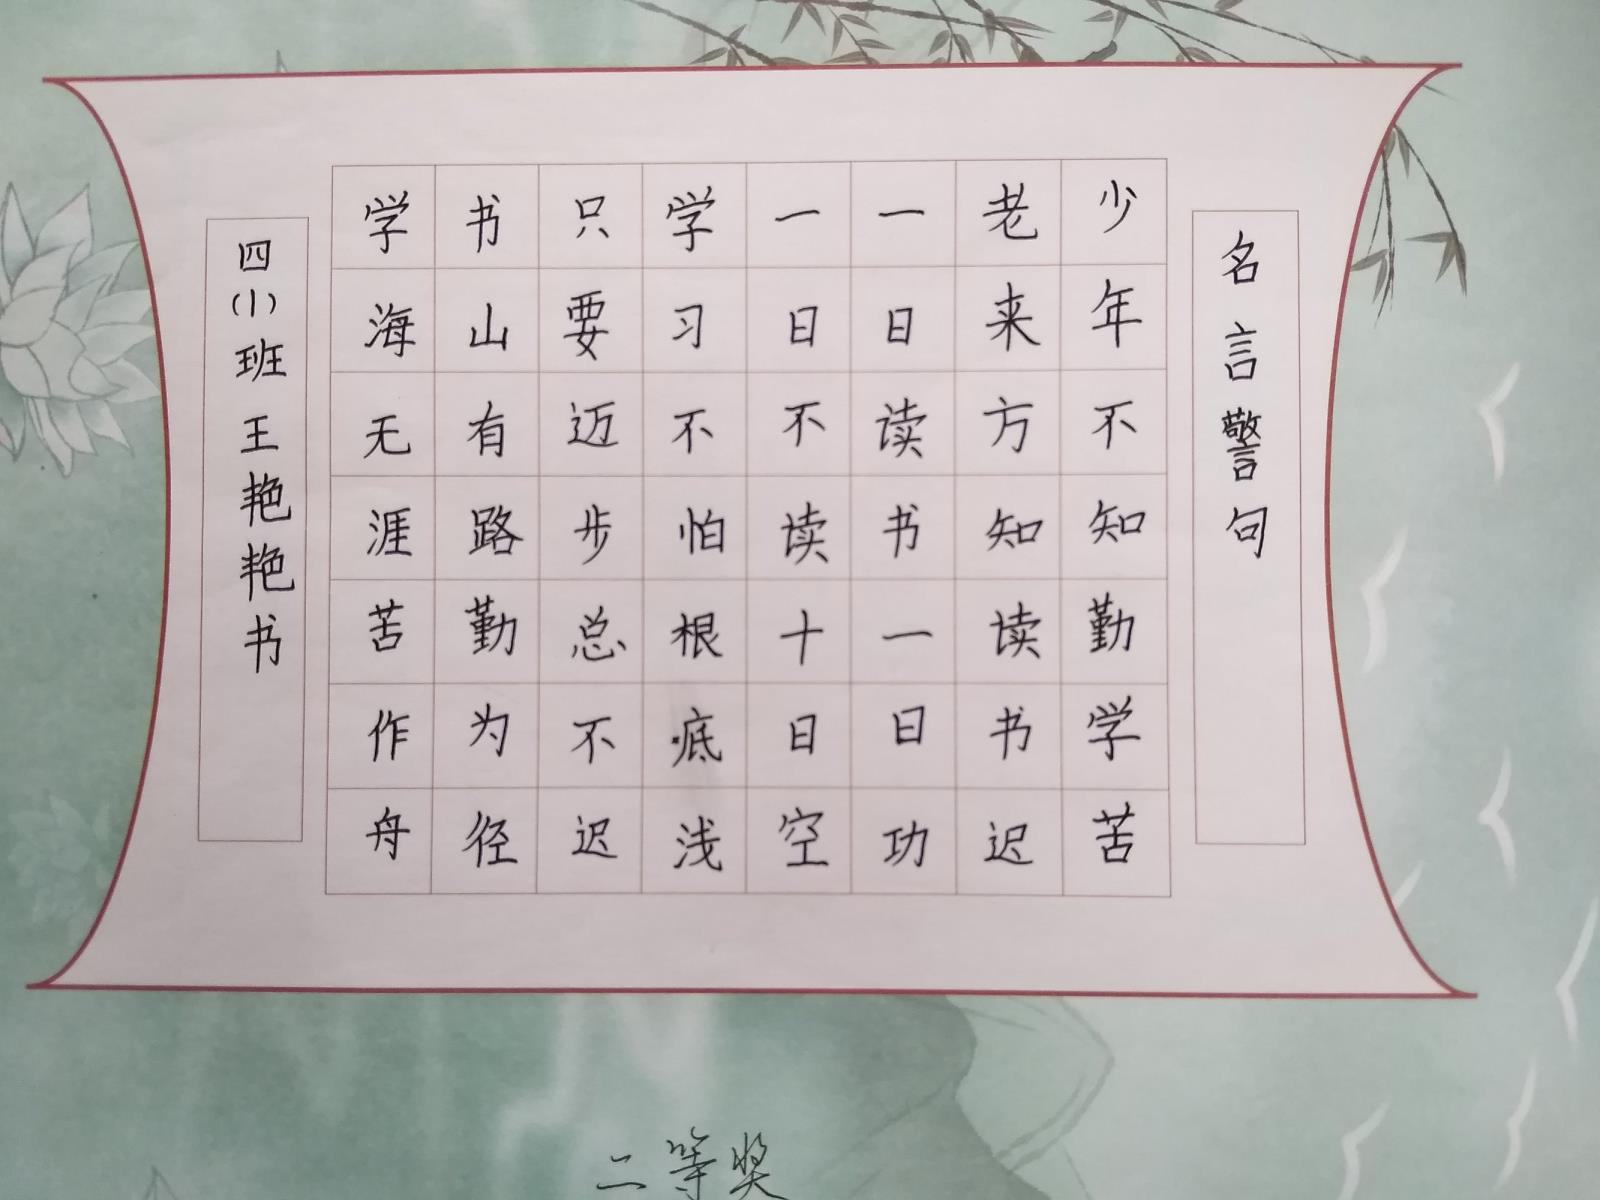 名言警句
少年不知勤学苦
老来方知读书迟
一日读书一日功
一日不读十日空
学习不怕根底浅
只要迈步总不迟
书山有路勤为径
学海无涯苦作舟
四(1)班 王艳艳书
二等奖